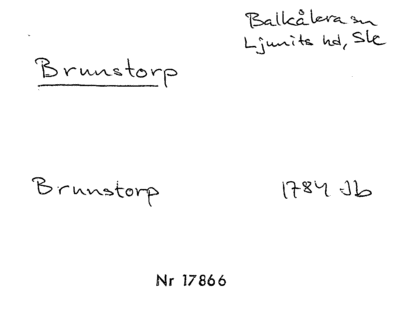 Balkåkra sn
Ljunits hd, Sk
Brunstorp
Brunstorp 1784 Jb
Nr 17866